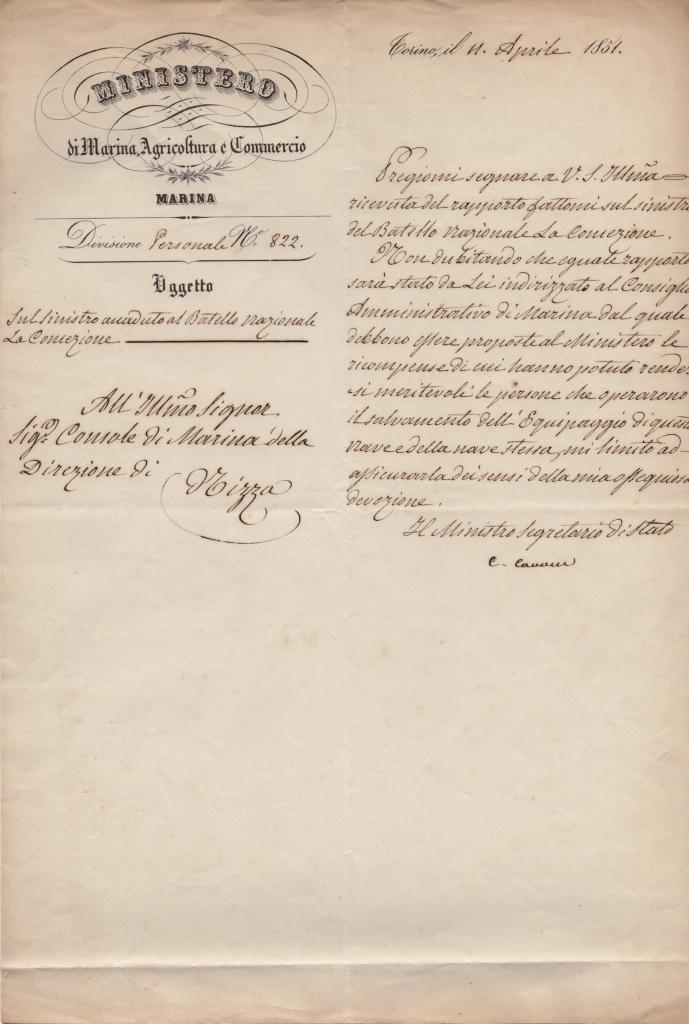 MINISTERO
di Marina, Agricoltura e Commercio
MARINA
Divisione Personale N.º 822.
Oggetto
Sul sinistro accaduto al Batello nazionale
La Concezione
All' Illmo Signor
Sigr. Console di Marina della
Direzione di
Nizza
Torino, il 11. Aprile 1851.
Pregiomi segnare a V. S. Illma
ricevuta del rapporto fattomi sul sinistro
del Batello nazionale La Concezione.
Non dubitando che eguale rapporto
sarà stato da Lei indirizzato al Consiglio
Amministrativo di Marina dal quale
debbono essere proposte al Ministero le
ricompense di cui hanno potuto render
-si meritevoli le persone che operarono
il salvamento dell' Equipaggio di questa
nave e della nave stessa, mi limito ad
assicurarla dei sensi della mia ossequiosa
devozione.
Il Ministro Segretario di Stato
C. Cavour